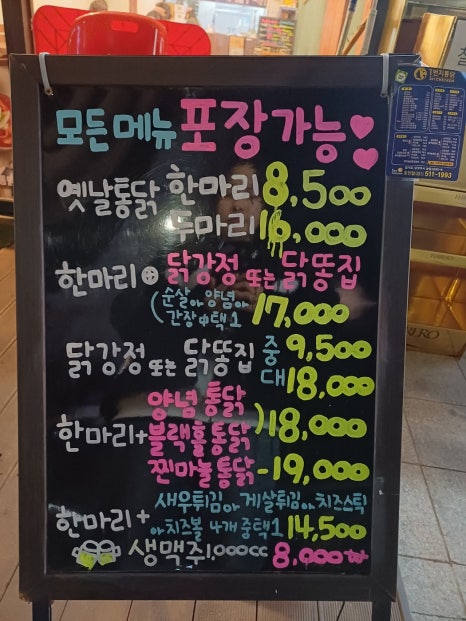 모든메뉴 포장가능
옛날통닭 한마리 8,500
두마리 16,000
한마리 + 닭강정 또는 닭똥집
(순살 or 양념 or
간장中택1 17,000
닭강정 또는 닭똥집 중 9,500
대 18,000
양념통닭
한마리+블랙홀통닭 )18,000
찐마늘통닭 -19,000
새우튀김or 게살튀김or 치즈스틱
한마리+ or치즈볼 4개 중택1 14,500
생맥주1,000cc 8,000
번지통닭
511-1993